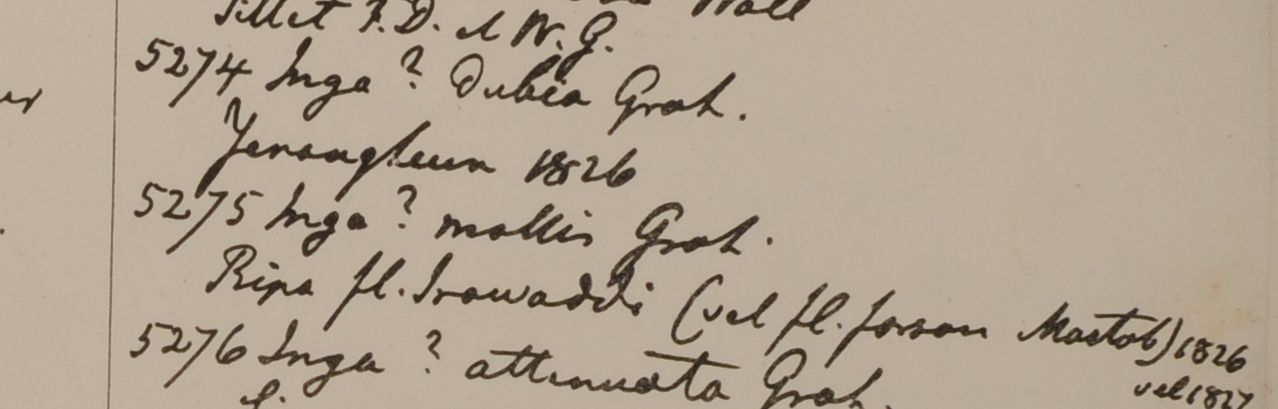 Sillet F.D. et W.G. Wall
5274 Inga ? dubia Grah.
Yenangheun 1826
5275 Inga ? mollis Grah.
Ripa fl. Irawaddi (vel fl. forsan Martab) 1826
vel 1827
5276 Inga ? attenuata Grah.